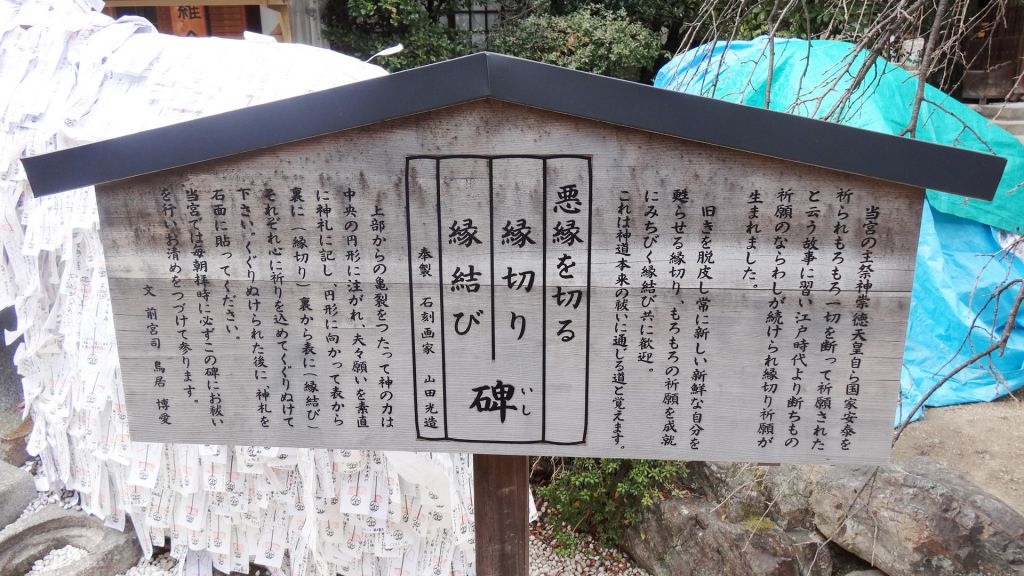 当宮の主祭神崇徳天皇自ら国家安泰を
祈られもろもろ一切を断って祈願された
と云う故事に習い江戸時代より断ちもの
祈願のならわしが続けられ縁切り祈願が
生まれました。
旧きを脱皮し常に新しい新鮮な自分を
甦らせる縁切り、もろもろの祈願を成就
にみちびく縁結び共に歓迎。
これは神道本来の祓いに通じる道と覚えます。
悪縁を切る
縁切り
縁結び
碑
いし
奉製 石刻画家 山田光造
上部からの亀裂をつたって神の力は
中央の円形に注がれ、夫々願いを素直
に神札に記し、円形に向かって表から
裏に(縁切り)裏から表に(縁結び)
それぞれ心に祈りを込めてくぐりぬけて
下さい。くぐりぬけられた後に、神札を
石面に貼ってください。
当宮では毎朝拝時に必ずこの碑にお祓い
を行いお清めをつづけて参ります。
文 前宮司 鳥居 博愛